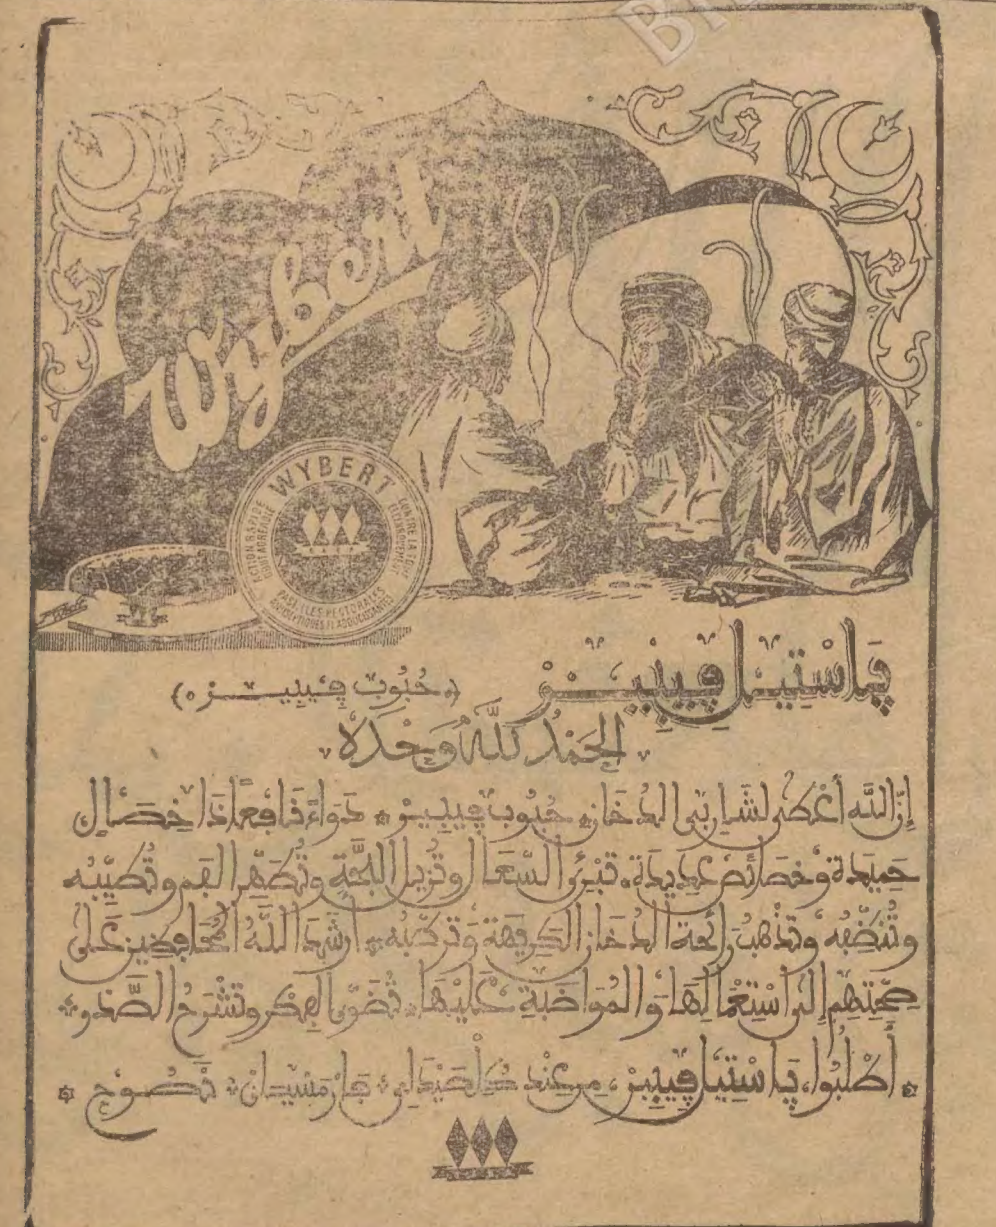 Wybert
WYBERT
ACTION RAPIDE
GOUT AGREABLE
CONTRE LA TOUX
PASTILLES PECTORALES
ET ADOUCISSANTES
پاستيل ڢيبير
(حُبُوب ڢيبير)
الحمدُ لله وحدَهُ
إنّ الله أعطى لشاربي الدخان حُبُوب ڢيبير دواءً نافعًا ذا خصال
حميدة وخصائص عديدة، تبرئ السّعال وتُزيل البحّة وتُطهّر الفم وتُطيّبه
وتُنظّفه وتذهبُ رائحة الدخان الكريهة وتركّبه أرشد اللهُ المحافظين على
صحّتهم إلى استعمالها والمُواظبة عليها تُضوّي الفكر وتشرحُ الصّدر
أطلبُوا، پاستيل ڢيبير، من عند كلّ صيدلي، فارمسيان، نصوح